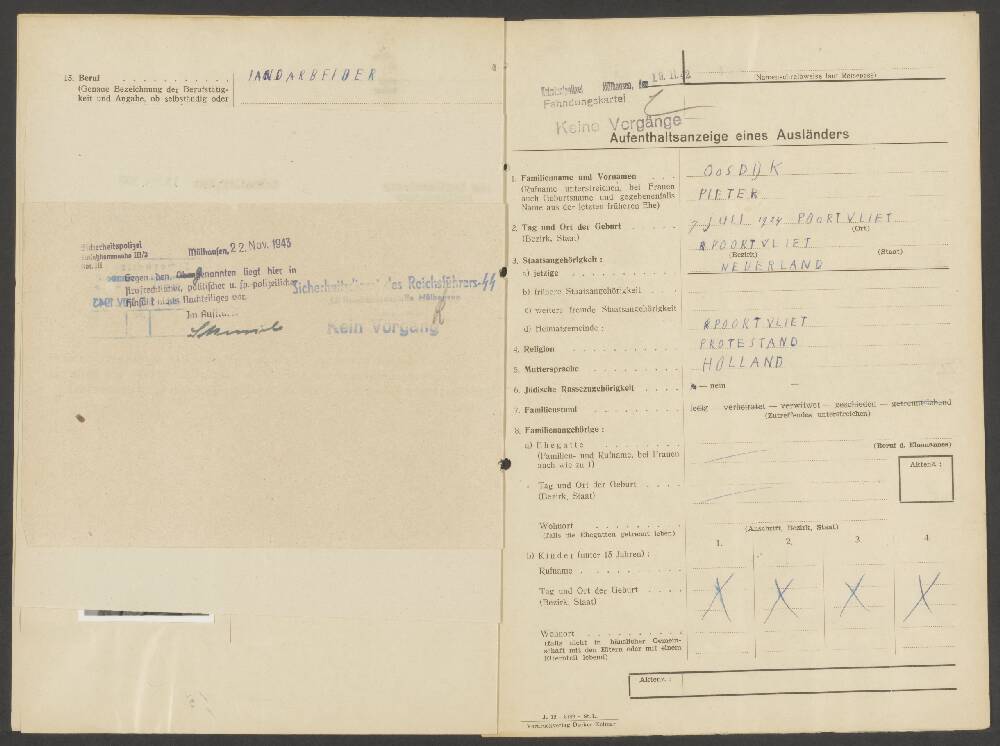 15. Beruf . . . . . . . . . . LANDARBEIDER
(Genaue Bezeichnung der Berufstätig-
keit und Angabe, ob selbständig oder
Sicherheitspolizei
Mülhausen, 22. Nov. 1943
Gegen den Obengenannten liegt hier in
strafrechtlicher, politischer u. sp.-polizeilicher
Hinsicht nichts Nachteiliges vor.
Im Auftrag
Sicherheitsdienst des Reichsführers-SS
Kein Vorgang
Mülhausen, den 19.11.42
Fahndungskartei
Keine Vorgänge
(Namensschreibweise laut Reisepass)
Aufenthaltsanzeige eines Ausländers
1. Familienname und Vornamen . . . OOSDIJK
(Rufname unterstreichen, bei Frauen PIETER
auch Geburtsname und gegebenenfalls
Name aus der letzten früheren Ehe)
2. Tag und Ort der Geburt . . . . 7 JULI 1924 POORTVLIET
(Ort)
(Bezirk, Staat) POORTVLIET
(Bezirk) (Staat)
3. Staatsangehörigkeit :
a) jetzige . . . . . . . . . NEDERLAND
b) frühere Staatsangehörigkeit . . .
c) weitere fremde Staatsangehörigkeit
d) Heimatgemeinde : POORTVLIET
4. Religion . . . . . . . . . . PROTESTAND
5. Muttersprache . . . . . . . . HOLLAND
6. Jüdische Rassezugehörigkeit . . . . ja — nein —
7. Familienstand . . . . . . . . ledig — verheiratet — verwitwet — geschieden — getrenntlebend
(Zutreffendes unterstreichen)
8. Familienangehörige :
a) Ehegatte . . . . . . . . (Beruf d. Ehemannes)
(Familien- und Rufname, bei Frauen
auch wie zu 1)
Aktenz. :
Tag und Ort der Geburt . . . .
(Bezirk, Staat)
Wohnort . . . . . . . . (Anschrift, Bezirk, Staat)
(falls die Ehegatten getrennt leben)
1. 2. 3. 4.
b) Kinder (unter 15 Jahren) :
Rufname . . . . . . . . .
Tag und Ort der Geburt . . . . X X X X
(Bezirk, Staat)
Wohnort . . . . . . . . .
(falls nicht in häuslicher Gemein-
schaft mit den Eltern oder mit einem
Elternteil lebend)
Aktenz. :
Vordruckverlag Decker Kolmar